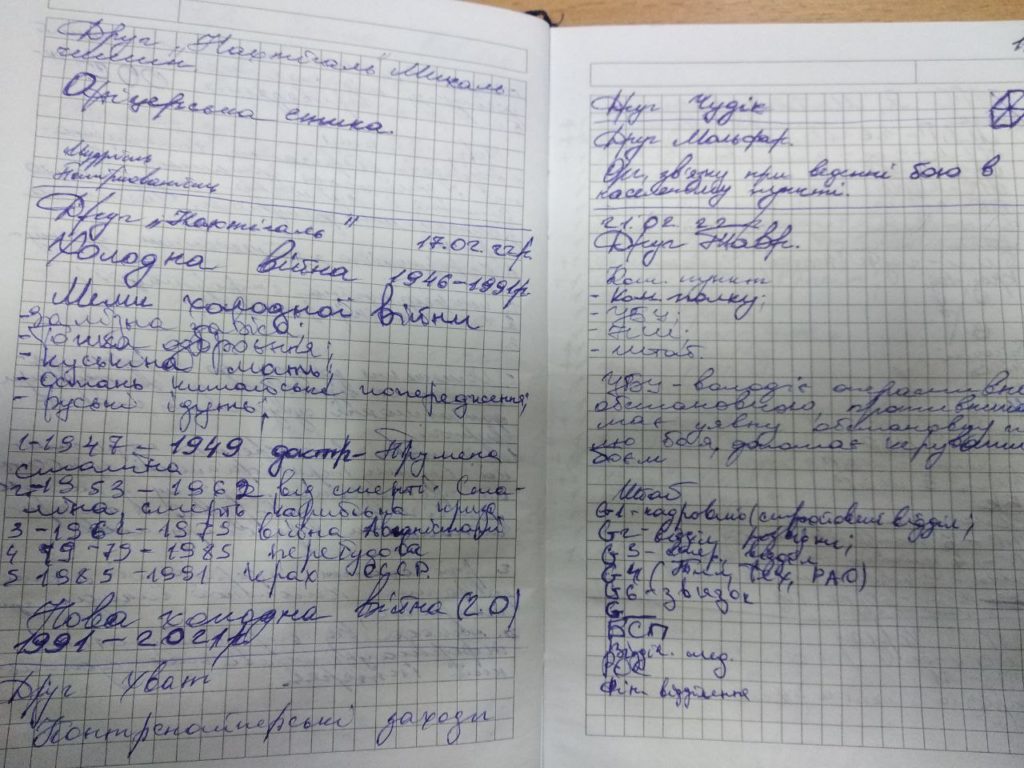 Друг „Нахтігаль" Михаль-
Офіцерська етика.
Друг „Нахтігаль"
17.02.22р.
Холодна війна 1946-1991р
Меми холодної війни
- Залізна завіса;
- кузькіна мать;
- остань китайське попередження;
- руські ідуть;
1-1947-1949 доктр- Трумена
сталіна
2-1953-1962 від смерті. Ста-
ліна, смерть карибська криза
3-1962-1979
4 79-79-1985 перебудова
5 1985-1991 крах СССР.
Нова холодна війна (2.0)
1991-2021р
Друг Хват
Контрснайперські заходи
Друг Чудік
Друг Мольфар.
Орг зв'язку при веденні бою в
населеному пункті.
21.02.22
Друг Мавр.
Ком. пункт
- Ком полку;
- УБУ;
- НШ;
- штаб.
УБУ - володіє оперативно
обстановкою, противника
має уявну обстановку
бою, допомає керувати
боєм
Штаб
G1-кадровию (стройовий відділ);
G2-відділ розвідки;
G3-
G4 (Тили, Тех, РАО)
G6-зв'язок
ПСП
мед.
Фін- відділення